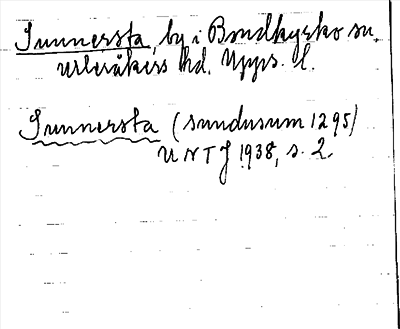 Sunnersta, by i Bondkyrko sn,
Ulleråkers hd. Upps. l.
Sunnersta (sundusum 1295)
UNTJ 1938, s. 2.